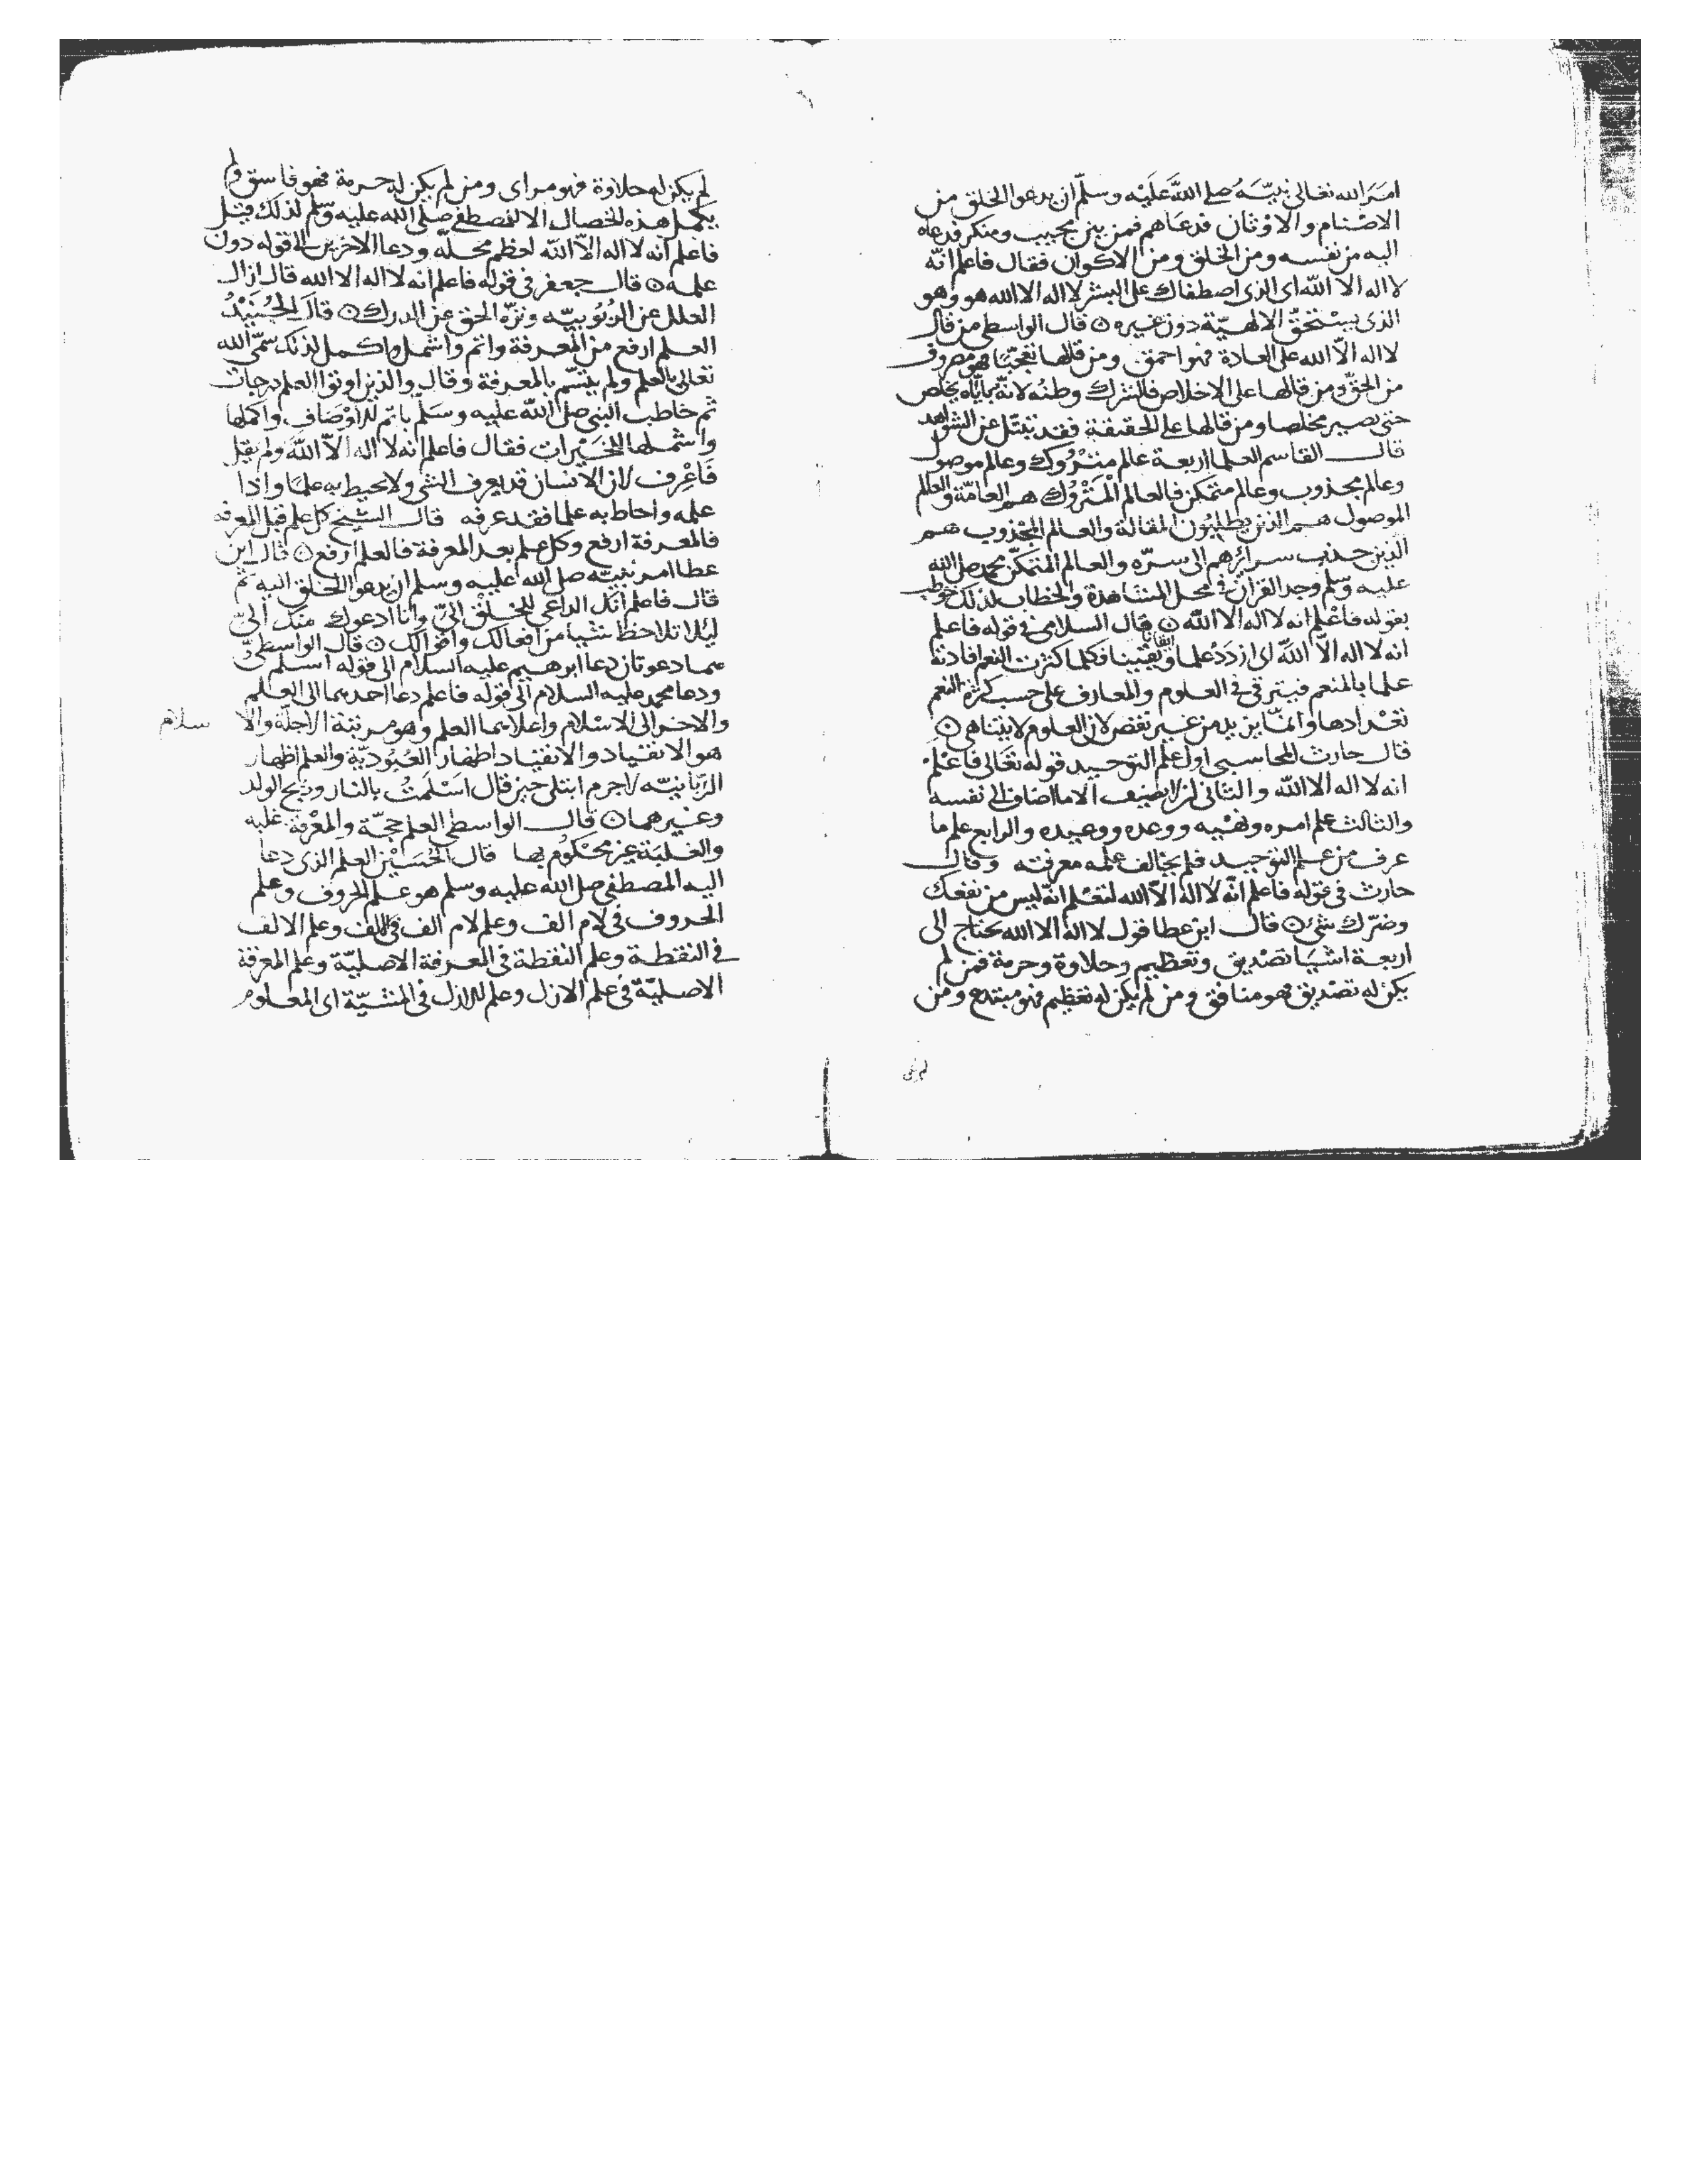 امَرَ الله تعالى نبيّه صلى الله عَلَيْه وسلّم ان يدعوا الخلق من
الاصْنام والاوْثان فدعَاهم فمن بين مجيب ومنكر فدعاه
اليه من نفسه ومن الخلق ومن الاكوان فقال فاعلم انّه
لا اله الا اللّه اى الذى اصطفاك على البشر لا اله الا الله هو وهو
الذى يسْتحقّ الالهيّة دون غيره ۞ قال الواسطى من قال
لا اله الّا الله على العادة فهو احمق ومن قالها تعجّبًا فهو مصروف
من الحقّ ومن قالها على الاخلاص فالشرك وطنُه لانّه بايّاه يخلص
حتى يصير مخلصا ومن قالها على الحقيقة فقد تبتّل عن الشواهد
قال القاسم العلما اربعة عالم متْرُوك وعالم موصول
وعالم مجذوب وعالم متمكن فالعالم الْمَتْرُوك هم العامّة والعالم
الموصول هم الذين يطلبُون المقالة والعالم المجْذوب هم
الذين جذب سرائرهم الى سرّه والعالم المتمكّن محمد صلى الله
عليه وسلم وجد القرآن فى محل المشاهدة والخطاب لذلك خوطب
بقوله فاعْلم انه لا اله الا اللّه ۞ قال السلامى فى قوله فاعلم
انه لا اله الّا اللّه اى ازدَدْ علما ويقينا فكلما كثرت النعم افادته
علما بالمنعم فيترقى فى العلوم والمعارف على حسب كثرة النعم
تعْدادها وانمّا يزيد من غير نقص لان العلوم لا يتناهى ۞
قال حارث المحاسبى اول علم التوحيد قوله تعَالى فاعْلمْ
انه لا اله الا اللّه والثانى ان لا يضيف الا ما اضاف الى نفسه
والثالث علم امره ونهْيه ووعده ووعيده والرابع علم ما
عرف من علم التوحيد فلم يخالف علمه معرفته وقال
حارث فى قوله فاعلم انّه لا اله الّا اللّه لتعْلم انّه ليس من نفعك
وضرّك شئ ۞ قال ابن عطا قول لا اله الا الله يحتاج الى
اربعة اشيَا تصْديق وتعظيم وحلاوة وحرمة فمن لم
يكن له تصْديق فهو منافق ومن لم يكن له تعظيم فهو مبتدع ومن
لم يكن له حلاوة فهو مراى ومن لم يكن له حرمة فهو فاسق ولم
يكمل هذه الخصال الا المصطفى صلى الله عليه وسلم لذلك قيل
فاعلم انه لا اله الّا اللّه لعظم محلّه ودعا الاخرين الى قوله دون
علمه ۞ قال جعفر فى قوله فاعلم انه لا اله الا الله قال ازال
العلل عن الربُوبيّه ونزّه الحق عن الدرك ۞ قالَ الجُنَيْدُ
العلم ارفع من المعرفة واتم واشمل واكمل لذلك سمّى اللّه
تعالى بالعلم ولم يتسّم بالمعرفة وقال والذين اوتوا العلم درجات
ثم خاطب النبى صلى اللّه عليه وسَلّم باتم الاوْصَاف واكملها
واشملها للخَيْرات فقال فاعلم انه لا اله الّا اللّه ولم يقل
فَاعْرِف لان الانسان قد يعرف الشى ولا يحيط به علمًا واذا
علمه واحاط به علما فقد عرفه قال الشيخ كل علم قبل المعرفه
فالمعرفة ارفع وكل علم بعد المعرفة فالعلم ارفع ۞ قال ابن
عطا امر نبيّه صلى الله عليه وسلم ان يدعو الخلق اليه ثم
قال فاعلم انك الداعى للخلْق الىّ وانا ادعوك منك الىّ
ليُلا تلاحظ شيا من افعالك واقوالك ۞ قال الواسطىّ
هما دعوتان دعا ابرهيم عليه السلام الى قوله اسلم
ودعا محمد عليه السلام الى قوله فاعلم دعا احدهما الى العلم
والاخر الى الاسْلام واعلاهما العلم وهو مرتبة الاجلّة والا سلام
هو الانقياد والانقياد اظهار العُبُوديّة والعلم اظهار
الرّبانيّه لا جرم ابتلى حين قال اسْلَمْتُ بالنار وذبح الولد
وغيرهما ۞ قال الواسطى العلم حجّة والمعْرفة غلبه
والغلبَة غير محْكُوم بها قال الحُسَيْن العلم الذى دعا
اليه المصطفى صلى اللّه عليه وسلم هو علم الحروف وعلم
الحروف فى لام الف وعلم لام الف فى الالف وعلم الالف
فى النقطة وعلم النقطة فى المعرفة الاصليّة وعلم المعرفة
الاصليّة فى علم الازل وعلم الازل فى المشيّة اى المعلوم